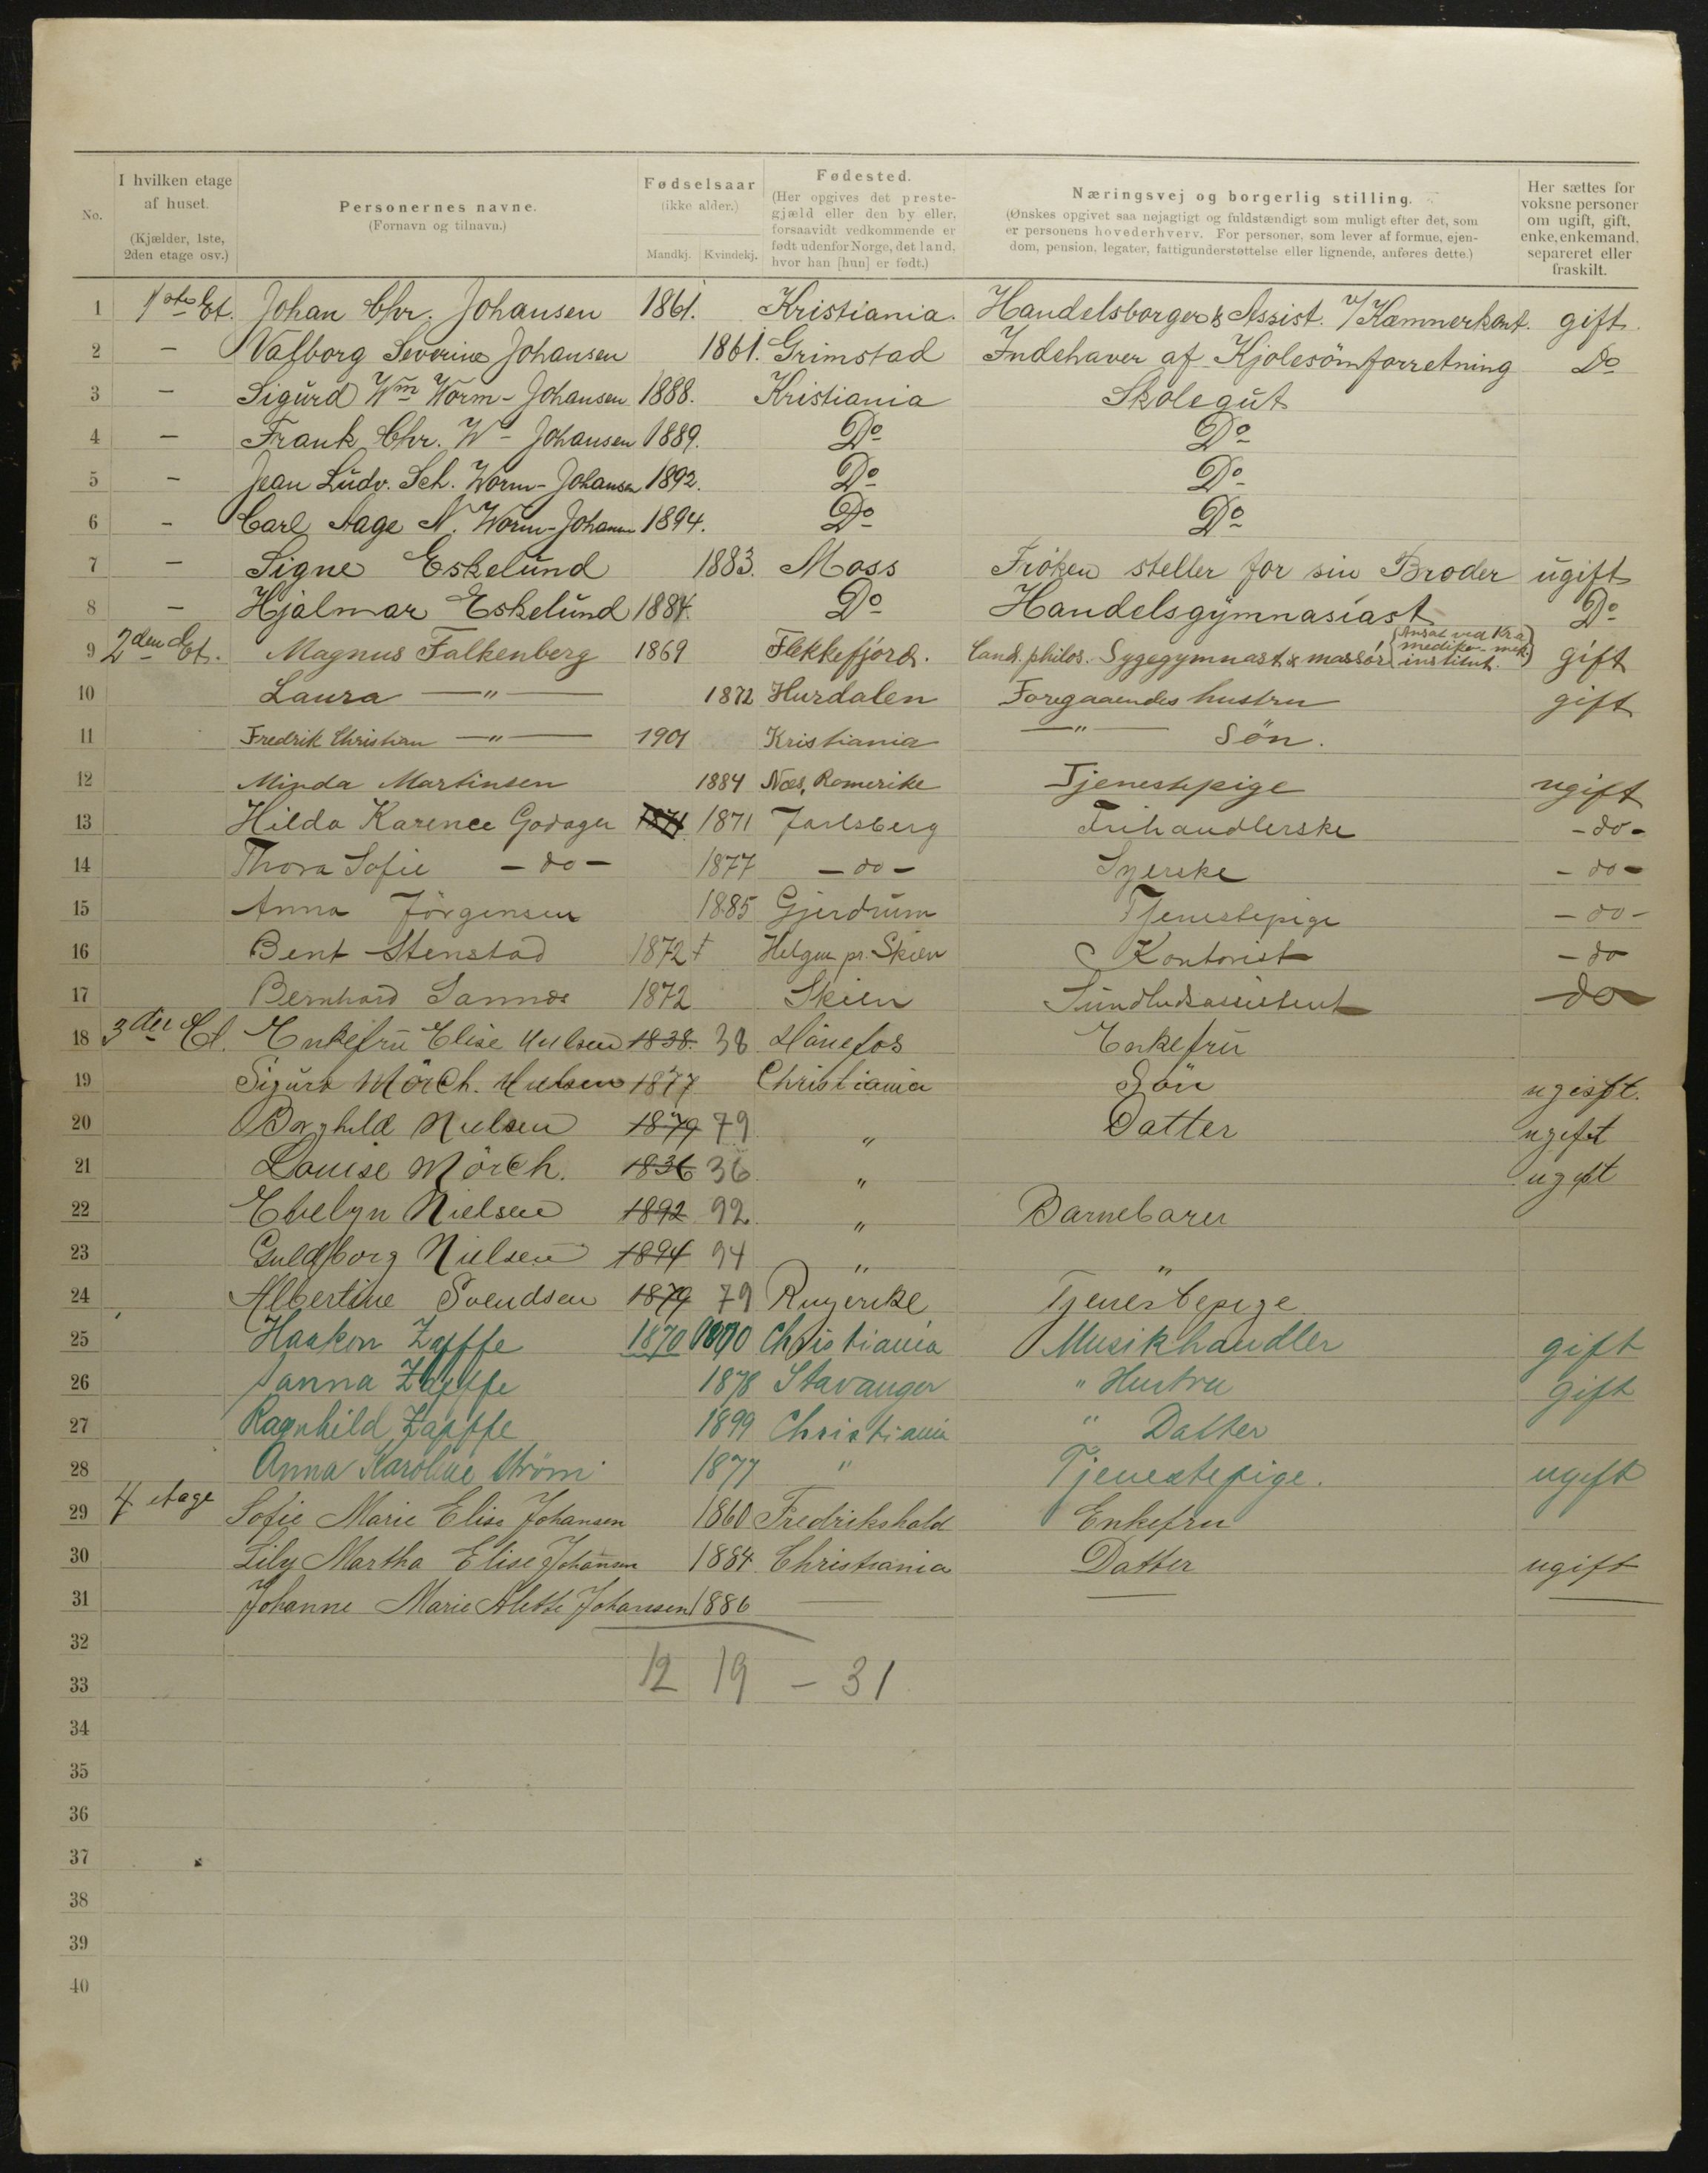 No.
I hvilken etage af huset. (Kjælder, 1ste, 2den etage osv.)
Personernes navne. (Fornavn og tilnavn.)
Fødselsaar (ikke alder.) Mandkj. Kvindekj.
Fødested. (Her opgives det prestegjæld eller den by eller, forsaavidt vedkommende er født udenfor Norge, det land, hvor han [hun] er født.)
Næringsvej og borgerlig stilling. (Ønskes opgivet saa nøjagtigt og fuldstændigt som muligt efter det, som er personens hovederhverv. For personer, som lever af formue, ejendom, pension, legater, fattigunderstøttelse eller lignende, anføres dette.)
Her sættes for voksne personer om ugift, gift, enke, enkemand, separeret eller fraskilt.
1 1ste Et. Johan Chr. Johansen 1861. Kristiania. Handelsborger & Assist. v/Kæmnerkont. gift.
2 — Valborg Severine Johansen 1861. Grimstad Indehaver af Kjolesömforretning Do
3 — Sigurd Wm Worm-Johansen 1888. Kristiania Skolegut
4 — Frank Chr. W - Johansen 1889. Do Do
5 — Jean Ludv. Sch. Worm-Johansen 1892. Do Do
6 — Carl Aage N. Worm-Johansen 1894. Do Do
7 — Signe Eskelund 1883. Moss Fröken steller for sin Broder ugift
8 — Hjalmar Eskelund 1884. Do Handelsgymnasiast Do
9 2den Et. Magnus Falkenberg 1869 Flekkefjord. Cand. philos. Sygegymnast & massör (Ansat ved Kra mediko-mek. institut.) gift
10 Laura —"— 1872 Hurdalen Foregaaendes hustru gift
11 Fredrik Christian —"— 1901 Kristiania —"— Sön.
12 Minda Martinsen 1884 Næs, Romerike Tjenestepige ugift
13 Hilda Karence Godager 1871 1871 Jarlsberg Frihandlerske - do -
14 Thora Sofie - do - 1877 - do - Syerske - do -
15 Anna Jörgensen 1885 Gjerdrum Tjenestepige - do -
16 Bent Stenstad 1872 Helgen pr. Skien Kontorist - do
17 Bernhard Sannes 1872 Skien do
18 3die Et. Enkefru Elise Nielsen 1838. 38 Hönefos Enkefru
19 Sigurd Mörch. Nielsen 1877 Christiania Sön ugift.
20 Borghild Nielsen 1879 79 " Datter ugift
21 Louise Mörch. 1836 36 " ugift
22 Evelyn Nielsen 1892 92 " Barnebarn
23 Guldborg Nielsen 1894 94 " "
24 Albertine Svendsen 1879 79 Tjenestepige
25 Haakon Zapffe 1870 1870 Christiania Musikhandler gift
26 Janna Zapffe 1878 Stavanger " Hustru gift
27 Ragnhild Zapffe 1899 Christiania " Datter
28 Anna Karoline Ström 1877 " Tjenestepige. ugift
29 4 etage Sofie Marie Elise Johansen 1860 Fredrikshald Enkefru
30 Lily Martha Elise Johansen 1884 Christiania Datter ugift
31 Johanne Marie Alette Johansen 1886 — — —
32
33 12 19 - 31
34
35
36
37
38
39
40